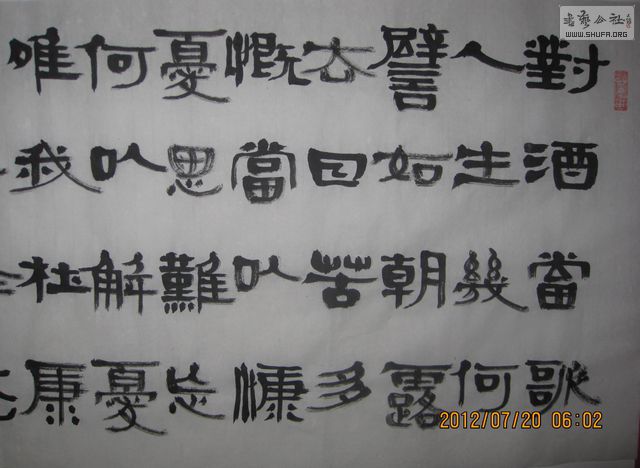 對酒當歌
人生幾何
譬如朝露
去日苦多
慨當以慷
憂思難忘
何以解憂
唯我杜康
書藝公社
WWW.SHUFA.ORG
2012/07/20 06:02